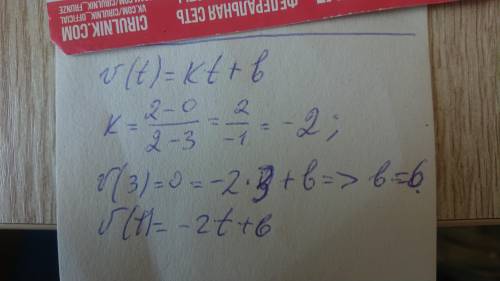 ФЕДЕРАЛЬНАЯ СЕТЬ
CIRULNIK.COM
VK.COM/CIRULNIK_FRUNZE
CIRULNIK_OFFICIAL
v(t)=kt+b
k=\frac{2-0}{2-3}=\frac{2}{-1}=-2;
v(3)=0=-2·3+b=>b=6
v(t)=-2t+6